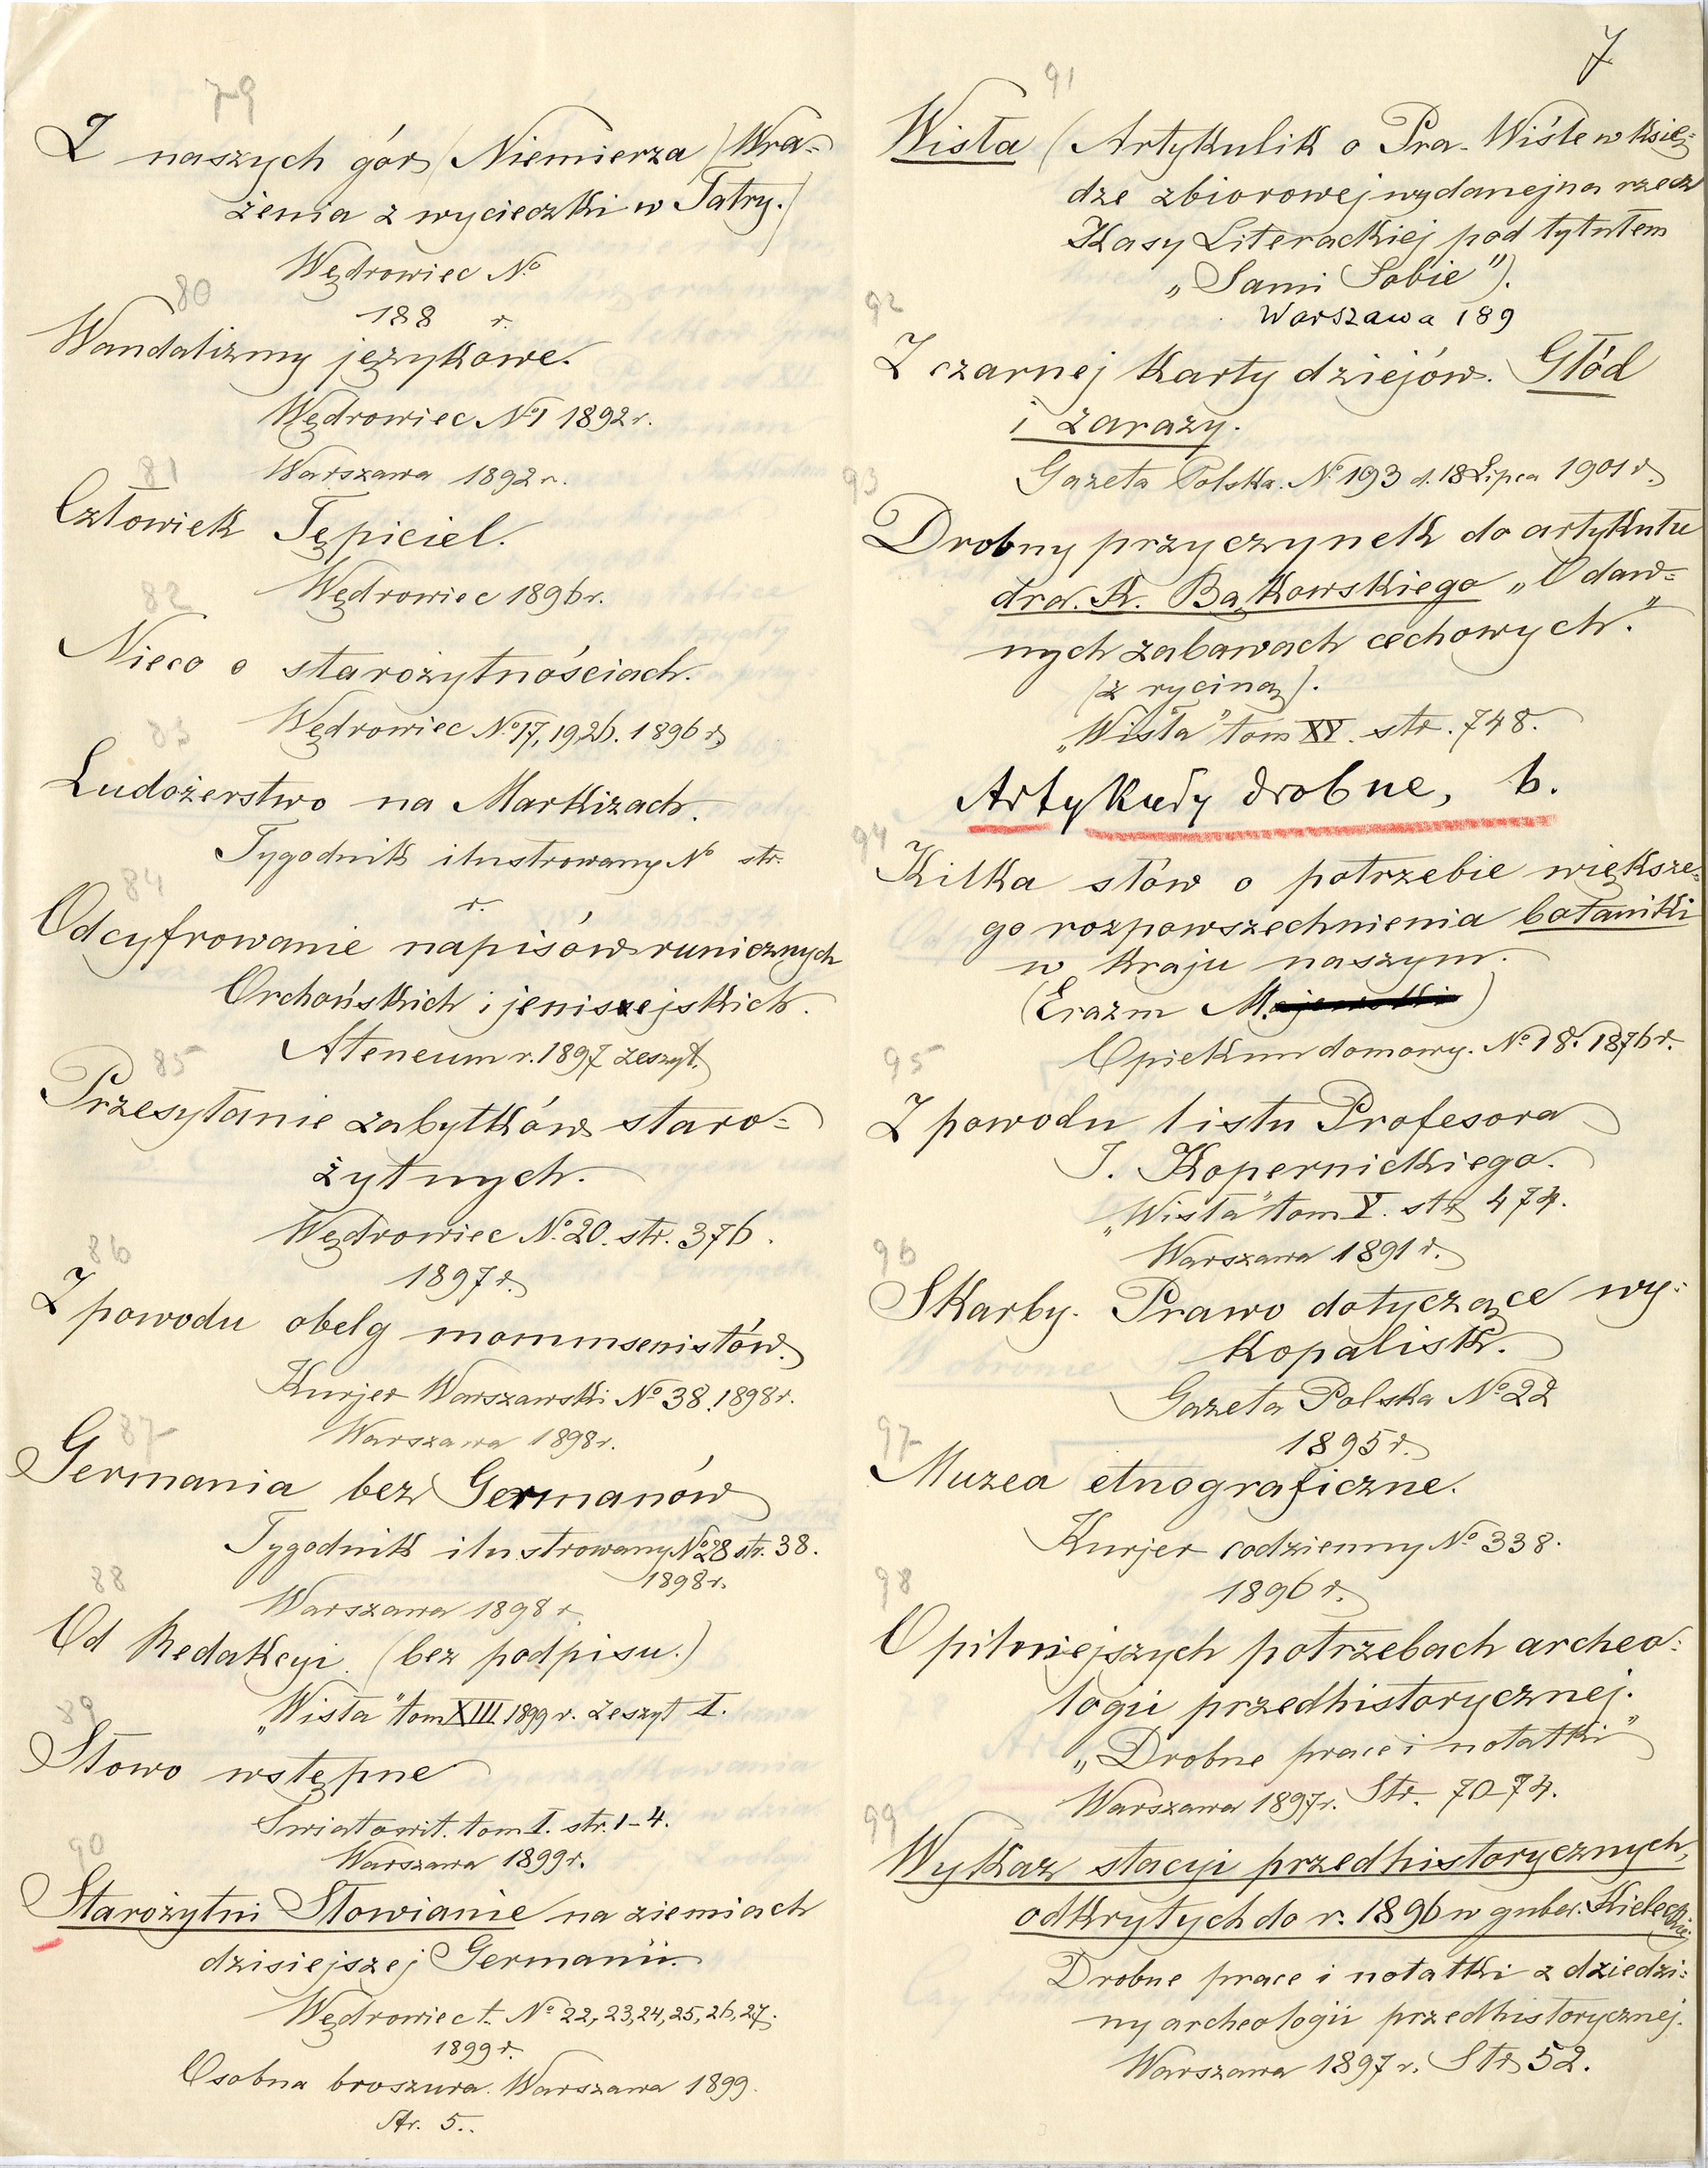 79
Z naszych gór (Niemierza) (Wra=
żenia z wycieczki w Tatry.)
Wędrowiec No
188 r.
80
Wandalizmy językowe.
Wędrowiec No 1 1892 r.
Warszawa 1892 r.
81
Człowiek Tępiciel.
Wędrowiec 1896 r.
82
Nieco o starożytnościach.
Wędrowiec No 17, 19, 26. 1896 r.
83
Ludożerstwo na Markizach.
Tygodnik ilustrowany No str.
r.
84
Odcyfrowanie napisów runicznych
Orchońskich i jenisejskich.
Ateneum r. 1897 zeszyt.
85
Przesyłanie zabytków staro=
żytnych.
Wędrowiec No 20. str. 376.
1897 r.
86
Z powodu obelg mommsenistów.
Kurjer Warszawski No 38. 1898 r.
Warszawa 1898 r.
87
Germania bez Germanów
Tygodnik ilustrowany No 28 str. 38.
1898 r.
Warszawa 1898 r.
88
Od Redakcyi. (bez podpisu.)
„Wisła" tom XIII 1899 r. zeszyt I.
89
Słowo wstępne
Światowit. tom I. str. 1-4.
Warszawa 1899 r.
90
Starożytni Słowianie na ziemiach
dzisiejszej Germanii.
Wędrowiec t. No 22, 23, 24, 25, 26, 27.
1899 r.
Osobna broszura. Warszawa 1899.
Str. 5..
7
91
Wisła (Artykulik o Pra-Wiśle w księ=
dze zbiorowej wydanej na rzecz
Kasy Literackiej pod tytułem
„Sami Sobie").
Warszawa 189
92
Z czarnej karty dziejów. Głód
i zarazy.
Gazeta Polska. No 193 d. 18 Lipca 1901 r.
93
Drobny przyczynek do artykułu
dra. K. Bąkowskiego „O daw=
nych zabawach cechowych."
(z ryciną).
„Wisła" tom XV. str. 748.
Artykuły drobne, b.
94
Kilka słów o potrzebie większe=
go rozpowszechnienia botaniki
w kraju naszym.
(Erazm Majewski)
Opiekun domowy. No 18. 1876 r.
95
Z powodu listu Profesora
I. Kopernickiego.
„Wisła" tom V. str. 474.
Warszawa 1891 r.
96
Skarby. Prawo dotyczące wy=
kopalisk.
Gazeta Polska No 22
1895 r.
97
Muzea etnograficzne.
Kurjer codzienny No 338.
1896 r.
98
O pilniejszych potrzebach archeo=
logii przedhistorycznej.
„Drobne prace i notatki"
Warszawa 1897 r. Str. 70-74.
99
Wykaz stacyi przedhistorycznych,
odkrytych do r. 1896 w guber. Kieleckiej
Drobne prace i notatki z dziedzi=
ny archeologii przedhistorycznej.
Warszawa 1897 r. Str 52.